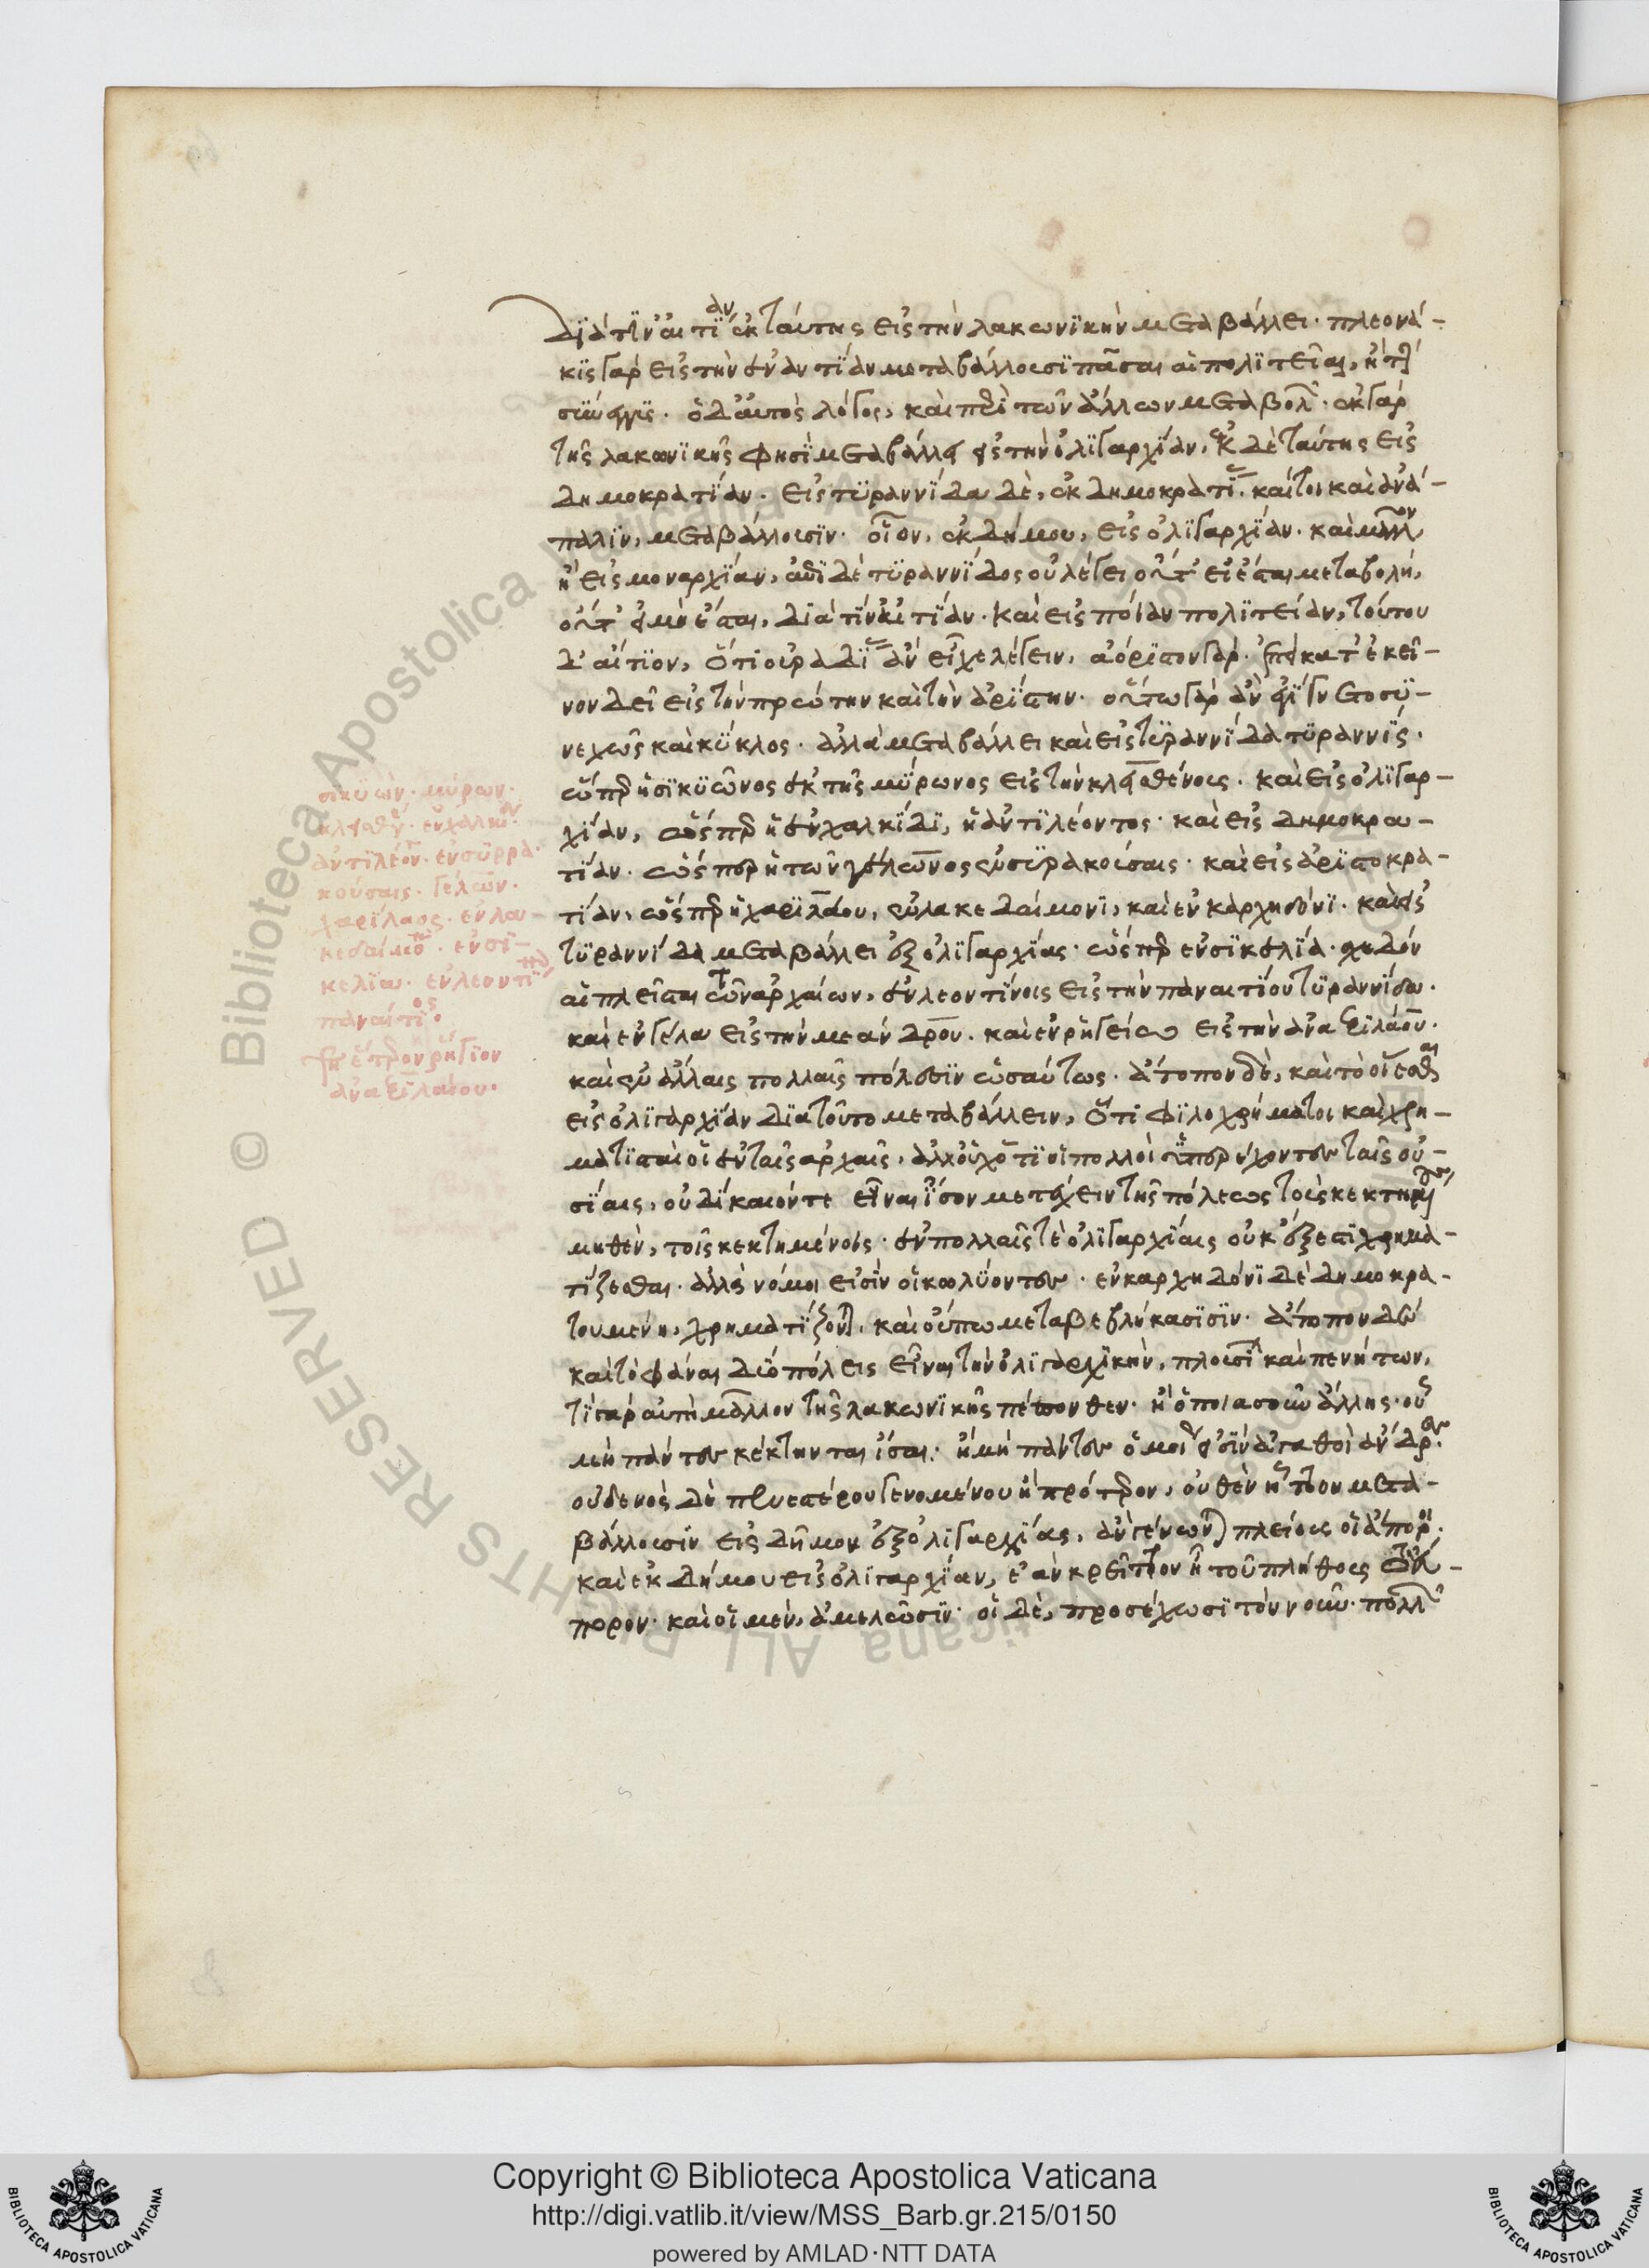 διὰ τίν' αἰτίαν ἐκ ταύτης εἰς τὴν λακωνικὴν μεταβάλλει· πλεονά-
κις γὰρ εἰς τὴν ἐναντίαν μεταβάλλουσι πᾶσαι αἱ πολιτεῖαι, ἢ τὴν
σύνεγγυς. ὁ δ' αὐτὸς λόγος, καὶ περὶ τῶν ἄλλων μεταβολῶν. ἐκ γὰρ
τῆς λακωνικῆς φησὶ μεταβάλλειν εἰς τὴν ὀλιγαρχίαν, ἐκ δὲ ταύτης εἰς
δημοκρατίαν. εἰς τυραννίδα δὲ, ἐκ δημοκρατίας. καίτοι καὶ ἀνά-
παλιν, μεταβάλλουσιν. οἷον, ἐκ δήμου, εἰς ὀλιγαρχίαν. καὶ μᾶλλον
ἢ εἰς μοναρχίαν, ἔτι δὲ τυραννίδος οὐ λέγει οὔτ' εἰ ἔσται μεταβολή,
οὔτ' εἰ μὴ ἔσται, διὰ τίν' αἰτίαν. καὶ εἰς ποίαν πολιτείαν, τούτου
δ' αἴτιον, ὅτι οὐ ῥαδίως ἂν εἶχε λέγειν, ἀόριστον γάρ. ἐπεὶ κατ' ἐκεῖ-
νον δεῖ εἰς τὴν πρώτην καὶ τὴν ἀρίστην. οὕτω γὰρ ἂν ἐγίγνετο συ-
νεχὲς καὶ κύκλος. ἀλλὰ μεταβάλλει καὶ εἰς τυραννίδα τυραννίς.
ὥσπερ ἡ σικυῶνος ἐκ τῆς μύρωνος εἰς τὴν κλεισθένους. καὶ εἰς ὀλιγαρ-
χίαν, ὥσπερ ἡ ἐν χαλκίδι, ἡ ἀντιλέοντος. καὶ εἰς δημοκρα-
τίαν. ὥσπερ ἡ τῶν γέλωνος ἐν συρακούσαις. καὶ εἰς ἀριστοκρα-
τίαν, ὥσπερ ἡ χαριλάου, ἐν λακεδαίμονι, καὶ ἐν καρχηδόνι. καὶ εἰς
τυραννίδα μεταβάλλει ἐξ ὀλιγαρχίας. ὥσπερ ἐν σικελίᾳ. σχεδὸν
αἱ πλεῖσται τῶν ἀρχαίων, ἐν λεοντίνοις εἰς τὴν παναιτίου τυραννίδα.
καὶ ἐν γέλα εἰς τὴν κλεάνδρου. καὶ ἐν ῥηγείω εἰς τὴν ἀναξιλάου.
καὶ ἐν ἄλλαις πολλαῖς πόλεσιν ὡσαύτως. ἄτοπον δὲ, καὶ τὸ οἴεσθαι
εἰς ὀλιγαρχίαν διὰ τοῦτο μεταβάλλειν, ὅτι φιλοχρήματοι καὶ χρη-
ματισταὶ οἱ ἐν ταῖς ἀρχαῖς. ἀλλ' οὐχ ὅτι οἱ πολλοὶ ὑπερέχοντες ταῖς οὐ-
σίαις, οὐ δίκαιόν τε εἶναι ἴσον μετέχειν τῆς πόλεως τοὺς κεκτημένους
μηθὲν, τοῖς κεκτημένοις. ἐν πολλαῖς τε ὀλιγαρχίαις οὐκ ἔξεστι χρημα-
τίζεσθαι. ἀλλὰ νόμοι εἰσὶν οἱ κωλύοντες. ἐν καρχηδόνι δὲ δημοκρα-
τουμένη, χρηματίζονται, καὶ οὔπω μεταβεβλήκασιν. ἄτοπον δὲ
καὶ τὸ φάναι δύο πόλεις εἶναι τὴν ὀλιγαρχικὴν, πλουσίων καὶ πενήτων,
τί γὰρ αὕτη μᾶλλον τῆς λακωνικῆς πέπονθεν. ἢ ὁποιασοῦν ἄλλης. οὗ
μὴ πάντες κέκτηνται ἴσα. ἢ μὴ πάντες ὁμοίως εἰσὶν ἀγαθοὶ ἄνδρες.
οὐδενὸς δὲ πενεστέρου γενομένου ἢ πρότερον, οὐθὲν ἧττον μετα-
βάλλουσιν εἰς δῆμον ἐξ ὀλιγαρχίας, ἂν γένωνται πλείους οἱ ἄποροι.
καὶ ἐκ δήμου εἰς ὀλιγαρχίαν, ἐὰν κρεῖττον ἢ τοῦ πλήθους τὸ εὔ-
πορον. καὶ οἱ μὲν, ἀμελῶσιν. οἱ δὲ, προσέχωσι τὸν νοῦν. πολλῶν
σικυών. μύρων.
κλεισθέν. ἐν χαλκίδι.
ἀντιλέων. ἐν συρρα-
κούσαις. γέλων.
χαρίλαος. ἐν λα-
κεδαίμονι. ἐν σι-
κελίω. ἐν λεοντί
παναίτιος.
ῥήγιον
ἀναξιλάου.
Biblioteca Apostolica Vaticana ALL RIGHTS RESERVED ©
Copyright © Biblioteca Apostolica Vaticana
http://digi.vatlib.it/view/MSS_Barb.gr.215/0150
powered by AMLAD·NTT DATA
BIBLIOTECA APOSTOLICA VATICANA
BIBLIOTECA APOSTOLICA VATICANA